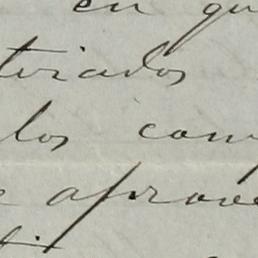 en qu
tirados
los com
e aprove